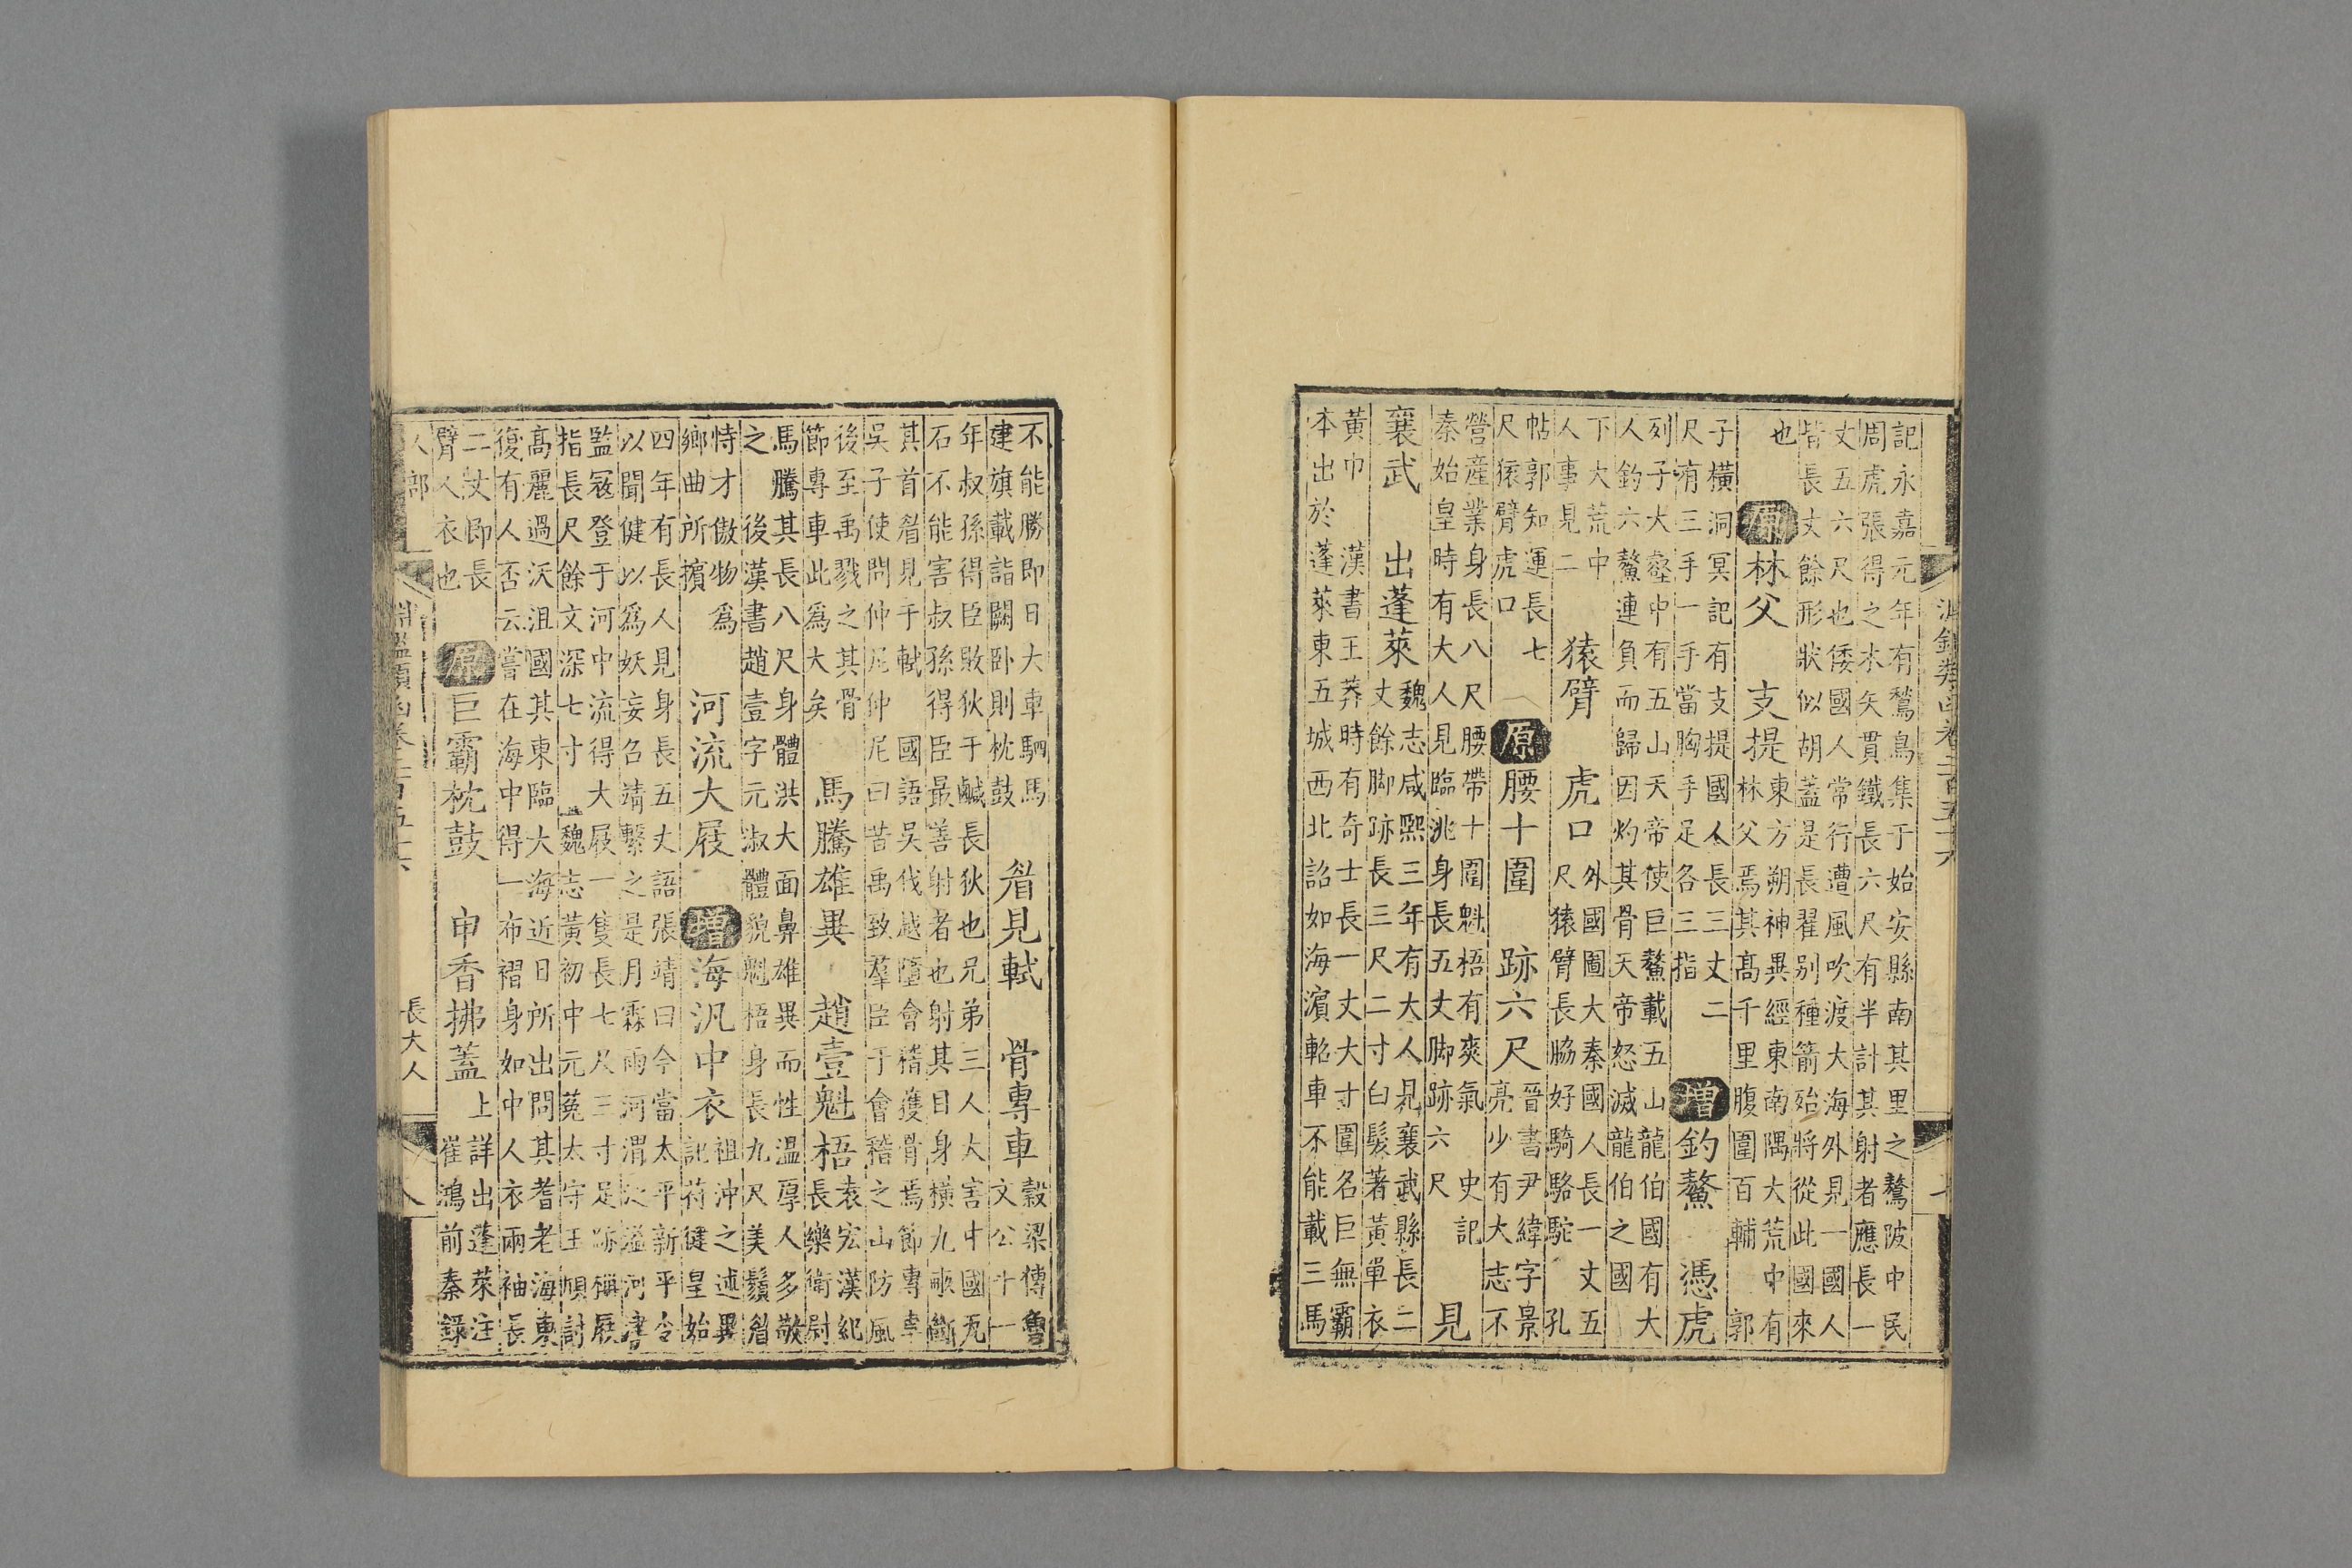 淵鑑類函卷二百五十六 七
記永嘉元年有鶖鳥集于始安縣南其里之鶖陂中民
周虎張得之木矢貫鐵長六尺有半計其射者應長一
丈五六尺也倭國人常行遭風吹渡大海外見一國人
皆長丈餘形狀似胡蓋是長翟别種箭殆將從此國來
也 原 林父 支提 東方朔神異經東南隅大荒中有
林父焉其高千里腹圍百輔 郭
子橫洞冥記有支提國人長三丈二
尺有三手一手當胸手足各三指 增 釣鰲 憑虎
列子大壑中有五山天帝使巨鰲載五山龍伯國有大
人釣六鰲連負而歸因灼其骨天帝怒滅龍伯之國
下大荒中
人事見二 猿臂 虎口 外國圖大秦國人長一丈五
尺猿臂長脇好騎駱駝 孔
帖郭知運長七
尺猿臂虎口 原 腰十圍 跡六尺 晉書尹緯字景
亮少有大志不
營產業身長八尺腰帶十圍魁梧有爽氣 史記
秦始皇時有大人見臨洮身長五丈脚跡六尺 見
襄武 出蓬萊 魏志咸熙三年有大人見襄武縣長二
丈餘脚跡長三尺二寸白髮著黃單衣
黃巾 漢書王莽時有奇士長一丈大寸圍名巨無霸
本出於蓬萊東五城西北詔如海濵軺車不能載三馬
不能勝即日大車駟馬
建旗載詣闕卧則枕鼓 眉見軾 骨專車 穀梁傳魯
文公十一
年叔孫得臣敗狄于鹹長狄也兄弟三人大害中國瓦
石不能害叔孫得臣最善射者也射其目身橫九畝斷
其首眉見于軾 國語吳伐越墮會稽獲骨焉節專車
吳子使問仲尼仲尼曰昔禹致羣臣于會稽之山防風
後至禹戮之其骨
節專車此爲大矣 馬騰雄異 趙壹魁梧 袁宏漢紀
長樂衛尉
馬騰其長八尺身體洪大面鼻雄異而性温厚人多敬
之 後漢書趙壹字元淑體貌魁梧身長九尺美鬚眉
恃才傲物爲
鄉曲所擯 河流大屐 增 海汎中衣 祖沖之述異
記苻健皇始
四年有長人見身長五丈語張靖曰今當太平新平令
以聞健以爲妖妄召靖繫之是月霖雨河渭
監寇登于河中流得大屐一隻長七尺三寸足跡稱屐
指長尺餘文深七寸 魏志黃初中元菟太守王頎討
高麗過沃沮國其東臨大海近日所出問其耆老海東
復有人否云嘗在海中得一布褶身如中人衣兩袖長
二丈即長
臂人衣也 原 巨霸枕鼓 申香拂蓋 上詳出蓬萊注
崔鴻前秦錄
人部 淵鑑類函卷二百五十六 長大人 八